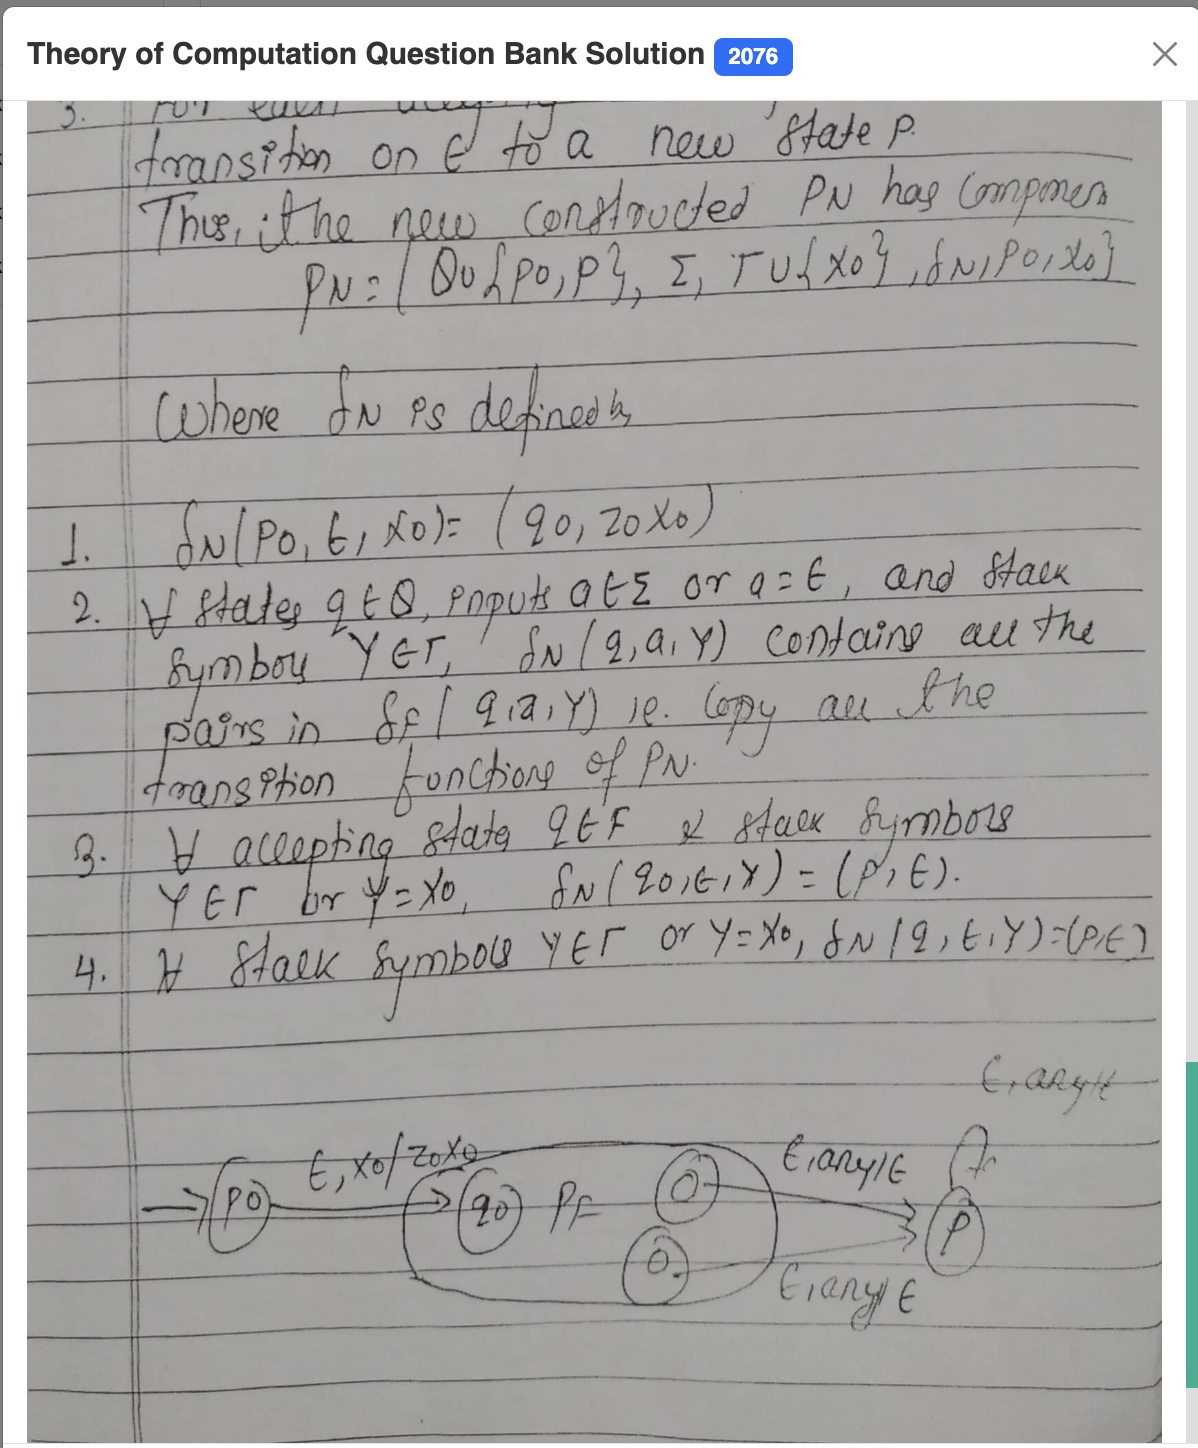 Theory of Computation Question Bank Solution 2076
3. For each accepting
transition on ε to a new state P.
Thus, the new constructed PN has componen
PN = ( Q∪{p0, p}, Σ, Γ∪{X0}, δN, P0, X0}
Where δN is defined by
1. δN(P0, ε, X0) = (q0, z0X0)
2. ∀ states q∈Q, inputs a∈Σ or a=ε, and stack
symbols Y∈Γ, δN(q,a,Y) contains all the
pairs in δF(q,a,Y) ie. copy all the
transition functions of PN.
3. ∀ accepting state q∈F & stack symbols
Y∈Γ or Y=X0, δN(q0,ε,Y) = (P,ε).
4. ∀ stack symbols Y∈Γ or Y=X0, δN(q,ε,Y)=(P,ε)
ε, any/ε
ε, X0/Z0X0
ε, any/ε
P0
q0
PF
P
ε, any/ε